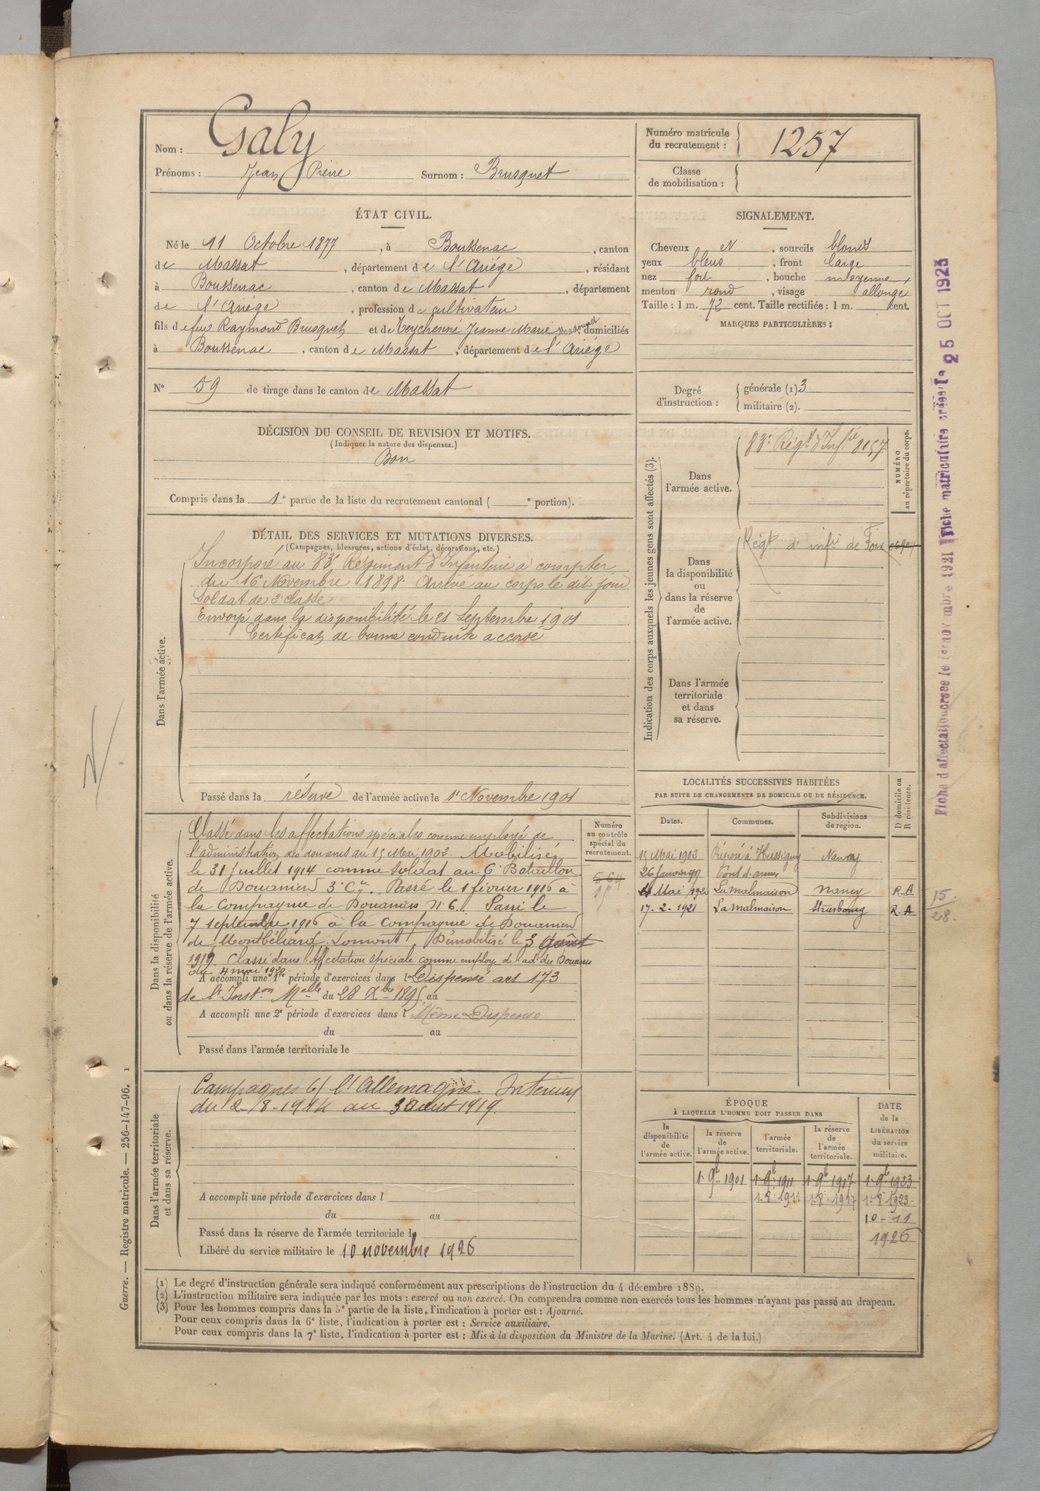 Nom : Galy
Prénoms : Jean Pierre Surnom : Brusquet
Numéro matricule du recrutement : 1257
Classe de mobilisation :
ÉTAT CIVIL.
Né le 11 Octobre 1877, à Boussenac, canton
de Massat, département de l'Ariège, résidant
à Boussenac, canton de Massat, département
de l'Ariège, profession de cultivateur
fils de feu Raymond Brusquet et de Teychenné Jeanne Marie domiciliés
à Boussenac, canton de Massat, département de l'Ariège
N° 59 de tirage dans le canton de Massat
SIGNALEMENT.
Cheveux N, sourcils blonds
yeux bleus, front large
nez fort, bouche moyenne,
menton rond, visage allongé
Taille : 1 m. 72 cent. Taille rectifiée : 1 m. cent.
MARQUES PARTICULIÈRES :
Degré d'instruction : générale (1) 3
militaire (2).
DÉCISION DU CONSEIL DE REVISION ET MOTIFS.
(Indiquer la nature des dispenses.)
Bon
Compris dans la 1e partie de la liste du recrutement cantonal ( e portion).
DÉTAIL DES SERVICES ET MUTATIONS DIVERSES.
(Campagnes, blessures, actions d'éclat, décorations, etc.)
Dans l'armée active.
Incorporé au 83e Régiment d'Infanterie à compter
du 16 Novembre 1898 Arrivé au corps le dit jour
Soldat de 2e classe
Envoyé dans la disponibilité le 21 Septembre 1901
Certificat de bonne conduite accordé
Passé dans la réserve de l'armée active le 1er Novembre 1901
Indication des corps auxquels les jeunes gens sont affectés (3).
NUMÉRO au répertoire du corps.
Dans l'armée active.
83e Régt d'Infie 8157
Dans la disponibilité ou dans la réserve de l'armée active.
Régt d'infie de Foix
Dans l'armée territoriale et dans sa réserve.
LOCALITÉS SUCCESSIVES HABITÉES
PAR SUITE DE CHANGEMENTS DE DOMICILE OU DE RÉSIDENCE.
Dates. Communes. Subdivisions de région. D domicile ou R résidence.
15 Mai 1903 Préposé à Hussigny Nancy
26 Janvier 09
4 Mai 1920 La Malmaison Nancy R.A
17. 2. 1921 La Malmaison Strasbourg R.A
15
28.
Dans la disponibilité ou dans la réserve de l'armée active.
Numéro au contrôle spécial du recrutement.
Classé dans les affectations spéciales comme employé de
l'administration des douanes au 15 Mai 1903. Mobilisé
le 31 juillet 1914 comme soldat au 6e Bataillon
de Douaniers 3e Cie. Passé le 1 février 1916 à
la Compagnie de Douaniers N° 6. Passé le
7 septembre 1916 à la Compagnie de Douaniers
de Montbéliard-Lomont. Démobilisé le 3 août
1919. Classé dans l'affectation spéciale comme employé de l'ad. des Douanes
A accompli une 1re période d'exercices dans l Dispensé art 173
de l'Inston Melle du 28 Xbre 1895 au
A accompli une 2e période d'exercices dans l Même Dispense
du au
Passé dans l'armée territoriale le
Dans l'armée territoriale et dans sa réserve.
Campagnes C/ l'Allemagne. Intérieur
du 2-8-1914 au 3 août 1919
A accompli une période d'exercices dans l
du au
Passé dans la réserve de l'armée territoriale l
Libéré du service militaire le 10 novembre 1926
ÉPOQUE
À LAQUELLE L'HOMME DOIT PASSER DANS
la disponibilité de l'armée active. la réserve de l'armée active. l'armée territoriale. la réserve de l'armée territoriale. DATE de la LIBÉRATION du service militaire.
1 9bre 1901 1 9bre 1911 1 9bre 1917 1 9bre 1923
10-11
1926
(1) Le degré d'instruction générale sera indiqué conformément aux prescriptions de l'instruction du 4 décembre 1889.
(2) L'instruction militaire sera indiquée par les mots : exercé ou non exercé. On comprendra comme non exercés tous les hommes n'ayant pas passé au drapeau.
(3) Pour les hommes compris dans la 5e partie de la liste, l'indication à porter est : Ajourné.
Pour ceux compris dans la 6e liste, l'indication à porter est : Service auxiliaire.
Pour ceux compris dans la 7e liste, l'indication à porter est : Mis à la disposition du Ministre de la Marine. (Art. 4 de la loi.)
Guerre. — Registre matricule. — 256-147-96. 1
Fiche matriculaire créée le 25 OCT 1923